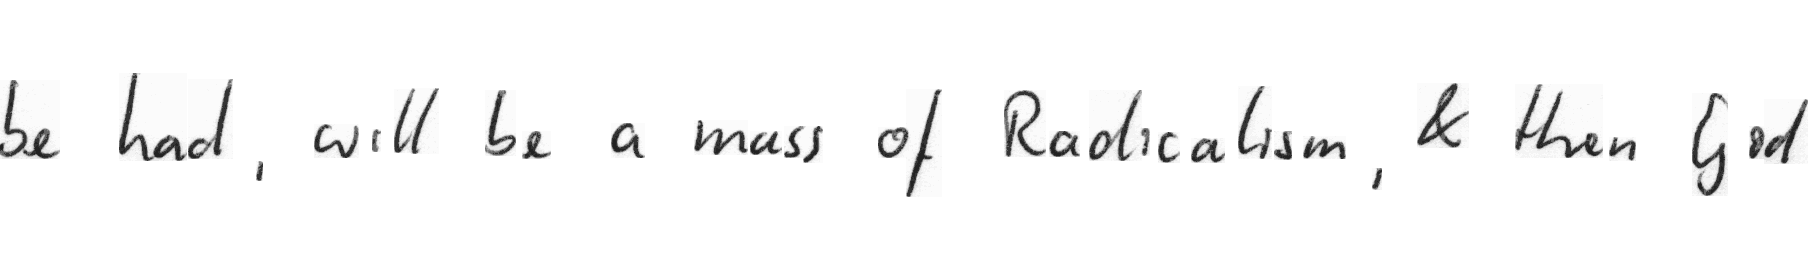 be had, will be a mass of Radicalism, & then God